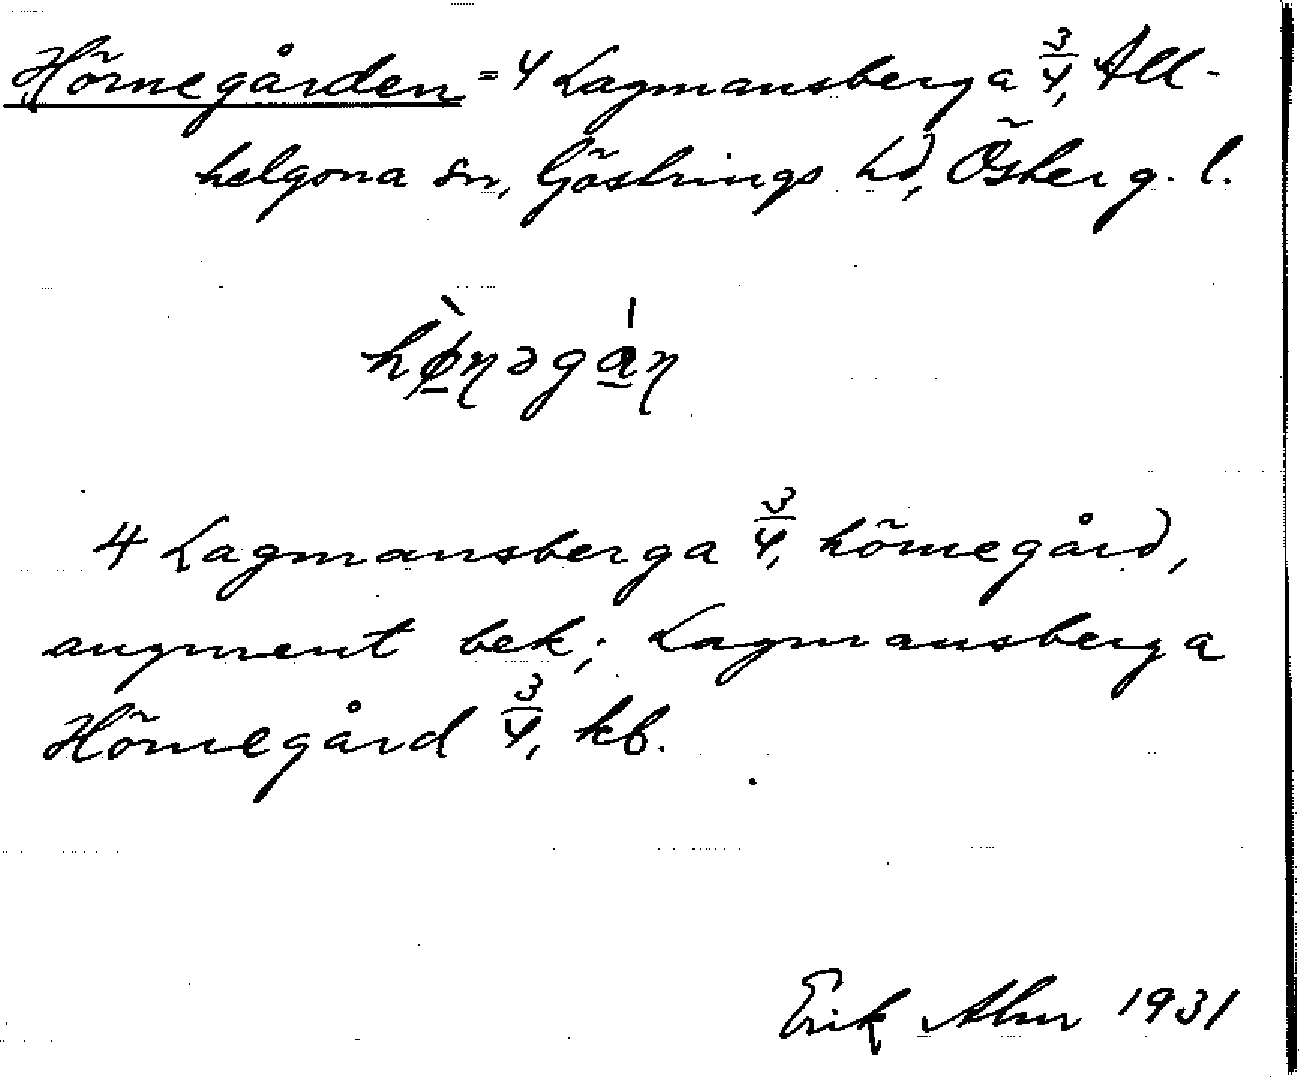 Hörnegården = 4 Lagmansberga 3/4, All-
helgona sn, Göstrings hd, Österg. l.
hø̱̀ŋəga̱̍ŋ
4 Lagmansberga 3/4, hörnegård,
augment bek; Lagmansberga
Hörnegård 3/4, kb.
Erik Abm 1931